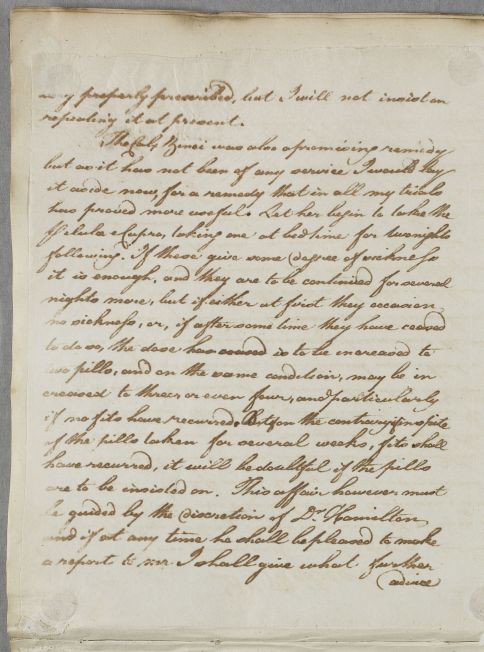 very properly prescribed, but I will not insist on
repeating it at present.
The Calx Zinci was also a promising remedy
but as it has not been of any service I would lay
it aside now, for a remedy that in all my trials
has proved more useful. Let her begin to take the
Pilulæ e Cupro, taking one at bedtime for two nights
following. If these give some degree of sickness
it is enough, and they are to be continued for several
nights more, but if either at first they occasion
no sickness, or, if after some time they have ceased
to do so, the dose is to be increased to
two pills, and on the same condition, may be in
creased to three or even four, and particularly
if no fits have recurred. But if on the contrary in spite
of the pills taken for several weeks, fits shall
have recurred, it will be doubtful if the pills
are to be insisted on. This affair however must
be guided by the discretion of Dr. Hamilton,
and if at any time he shall be pleased to make
a report to me I shall give what further
advice